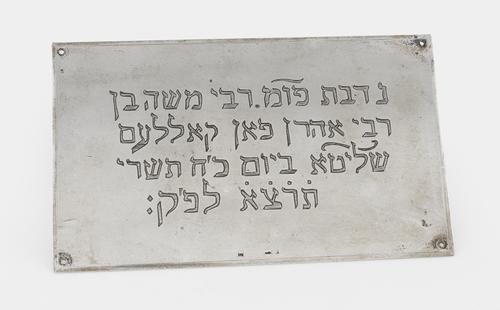 נדבת פומ׳ רבי משה בן
רבי אהרן פאן קאללעם
שליטא ביום כ׳ח תשרי
תרצא לפ׳ק: